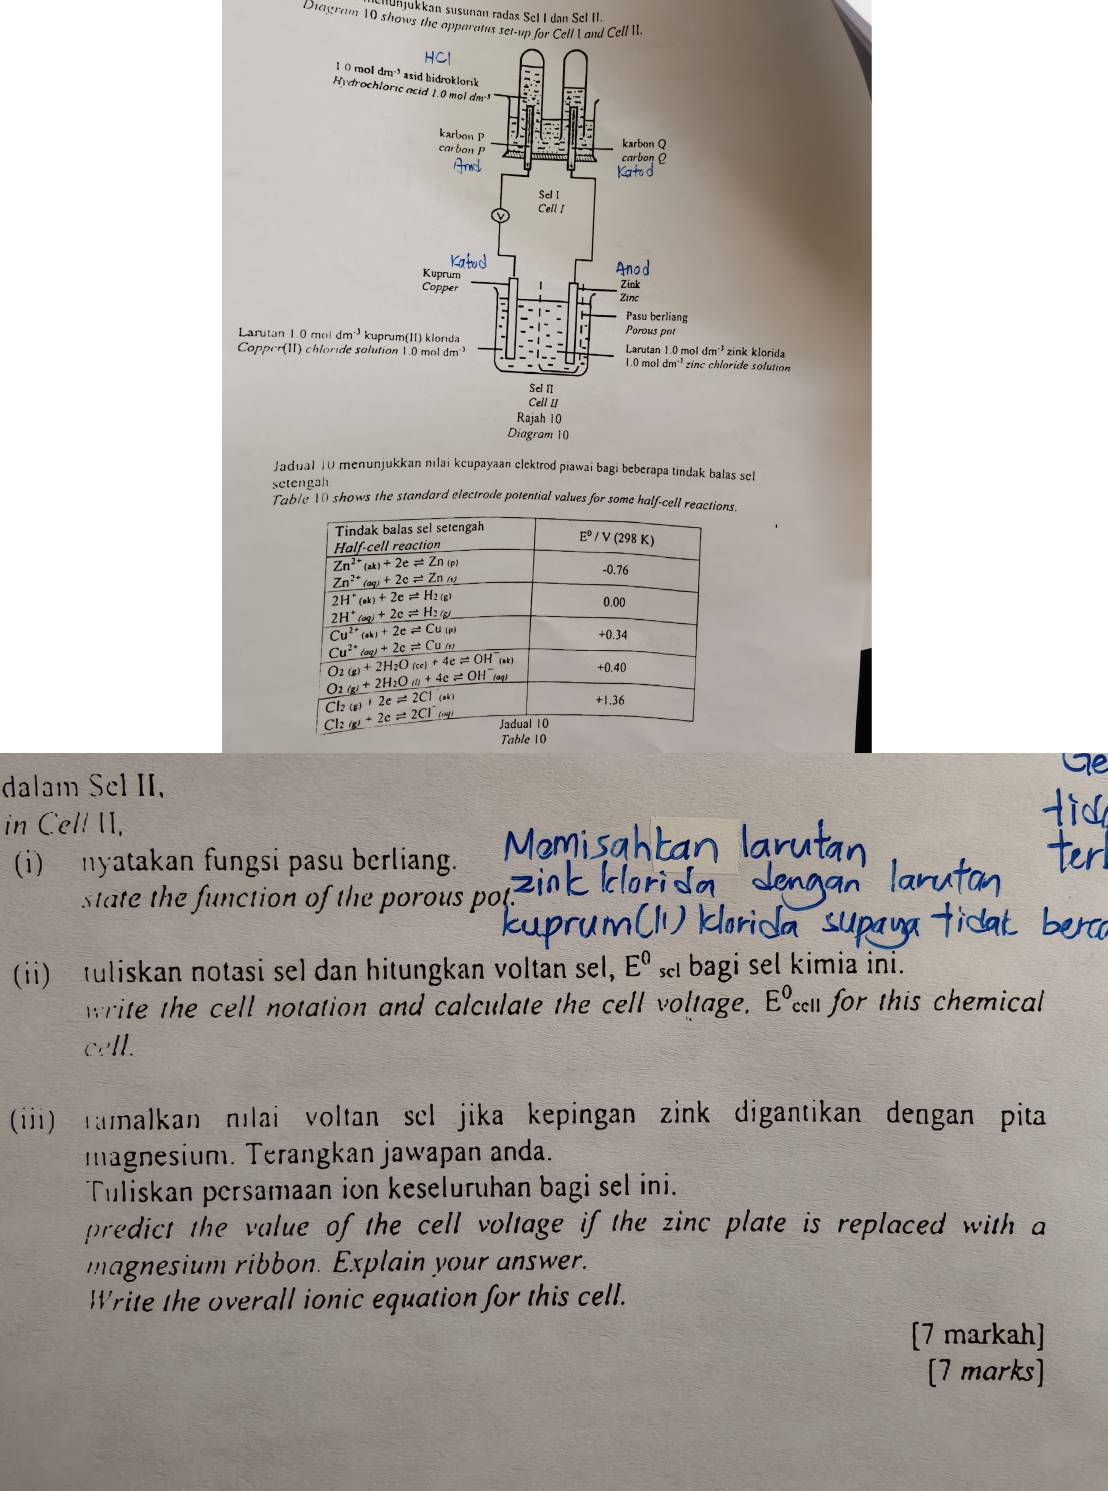 menunjukkan susunan radas Sel I dan Sel II.
Diagram 10 shows the apparatus set-up for Cell I and Cell II.
HCl
1 0 mol dm⁻³ asid hidroklorik
Hydrochloric acid 1.0 mol dm⁻³
karbon P
carbon P
Anod
karbon Q
carbon Q
Katod
Sel I
Cell I
V
Katod
Kuprum
Copper
Anod
Zink
Zinc
Pasu berliang
Porous pot
Larutan 1.0 mol dm⁻³ kuprum(II) klorida
Copper(II) chloride solution 1.0 mol dm⁻³
Larutan 1.0 mol dm⁻³ zink klorida
1.0 mol dm⁻³ zinc chloride solution
Sel II
Cell II
Rajah 10
Diagram 10
Jadual 10 menunjukkan nilai keupayaan elektrod piawai bagi beberapa tindak balas sel
setengah.
Table 10 shows the standard electrode potential values for some half-cell reactions.
Tindak balas sel setengah
Half-cell reaction
E⁰ / V (298 K)
Zn²⁺ (ak) + 2e ⇌ Zn (p)
Zn²⁺ (aq) + 2e ⇌ Zn (s)
-0.76
2H⁺ (ak) + 2e ⇌ H₂ (g)
2H⁺ (aq) + 2e ⇌ H₂ (g)
0.00
Cu²⁺ (ak) + 2e ⇌ Cu (p)
Cu²⁺ (aq) + 2e ⇌ Cu (s)
+0.34
O₂ (g) + 2H₂O (ce) + 4e ⇌ OH⁻ (ak)
O₂ (g) + 2H₂O (l) + 4e ⇌ OH⁻ (aq)
+0.40
Cl₂ (g) + 2e ⇌ 2Cl⁻ (ak)
Cl₂ (g) + 2e ⇌ 2Cl⁻ (aq)
+1.36
Jadual 10
Table 10
dalam Sel II,
in Cell II,
(i) nyatakan fungsi pasu berliang.
state the function of the porous pot.
Memisahkan larutan
zink klorida dengan larutan
kuprum(II) klorida supaya tidak
(ii) tuliskan notasi sel dan hitungkan voltan sel, E⁰ sel bagi sel kimia ini.
write the cell notation and calculate the cell voltage, E⁰cell for this chemical
cell.
(iii) ramalkan nilai voltan sel jika kepingan zink digantikan dengan pita
magnesium. Terangkan jawapan anda.
Tuliskan persamaan ion keseluruhan bagi sel ini.
predict the value of the cell voltage if the zinc plate is replaced with a
magnesium ribbon. Explain your answer.
Write the overall ionic equation for this cell.
[7 markah]
[7 marks]